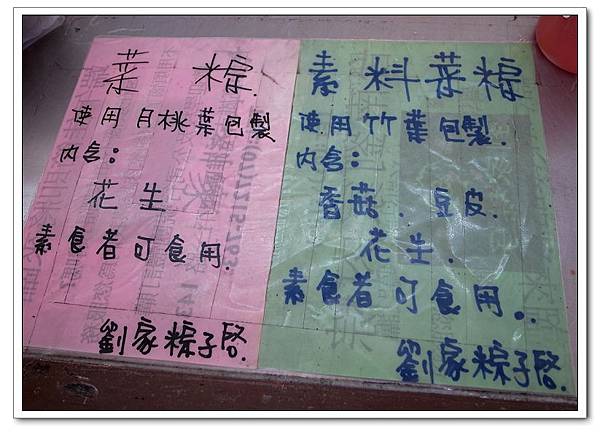 菜粽.
使用月桃葉包製
內含：
花生
素食者可食用.
劉家粽子啓.
素料菜粽
使用竹葉包製.
內含：
香菇.豆皮.
花生.
素食者可食用..
劉家粽子啓.